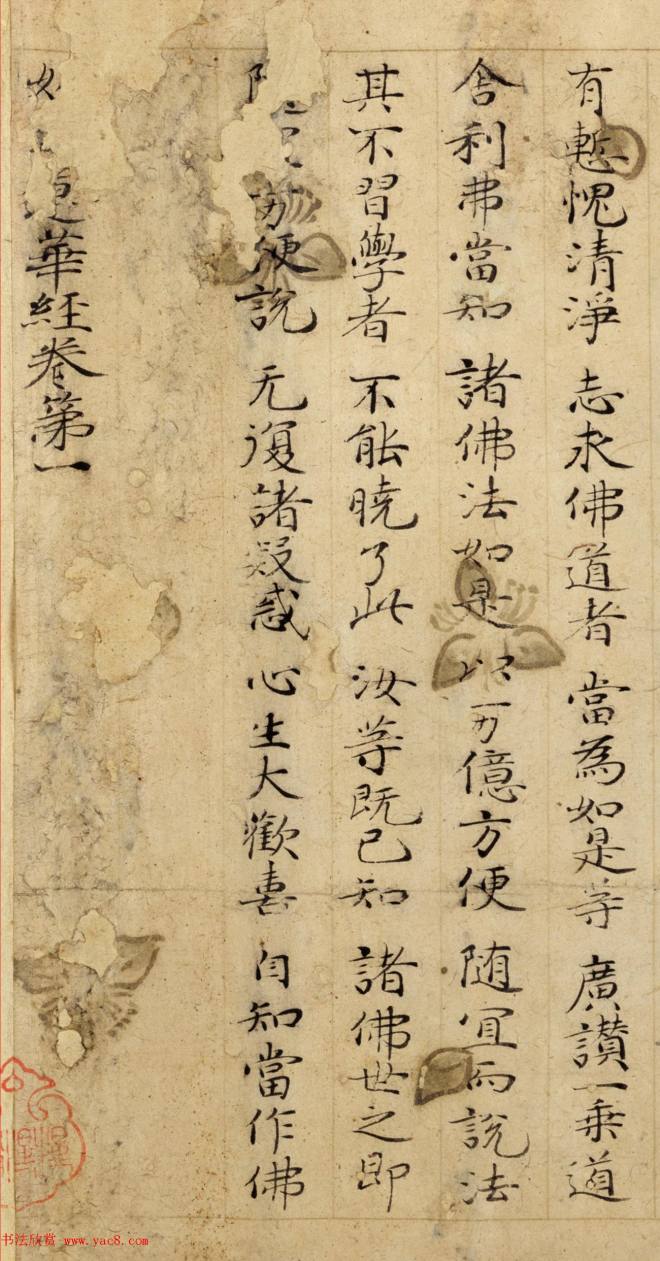 有慙愧清淨 志求佛道者 當為如是等 廣讚一乗道
舍利弗當知 諸佛法如是 以万億方便 随宜而說法
其不習學者 不能曉了此 汝等既已知 諸佛世之即
便說 无復諸疑惑 心生大歡喜 自知當作佛
華經卷第一
书法欣赏 www.yac8.com